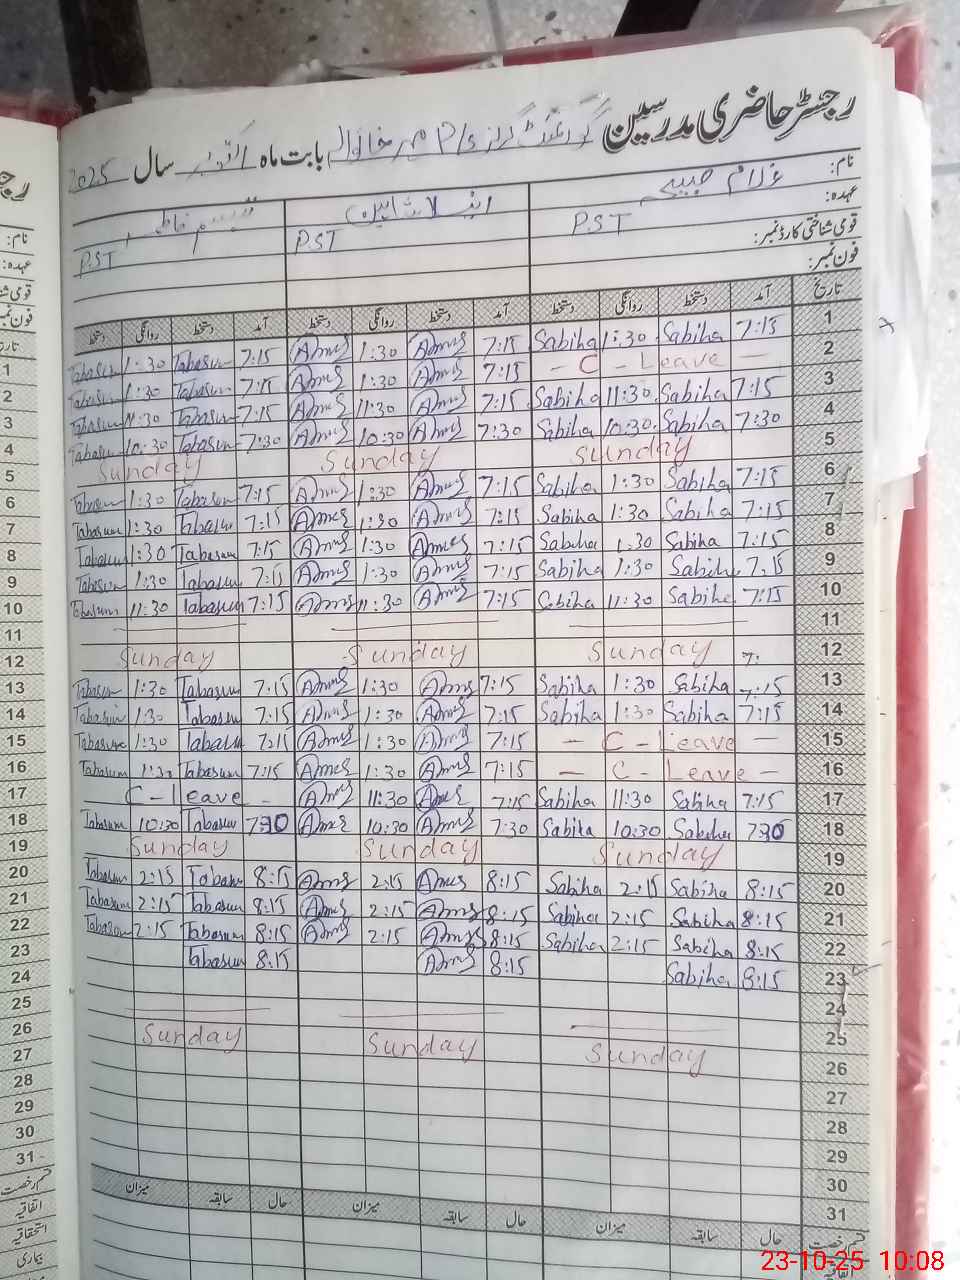 رجسٹر حاضری مدرسین گورنمنٹ گرلز بابت ماہ اکتوبر سال 2025
نام: غلام صبیحہ
عہدہ: PST P.ST P.ST
قومی شناختی کارڈ نمبر:
فون نمبر:
تاریخ آمد دستخط روانگی دستخط آمد دستخط روانگی دستخط آمد دستخط روانگی دستخط
1 7:15 Sabiha 1:30 Sabiha 7:15 1:30 7:15 Tabasum 1:30 Tabasum
2 — C - Leave — 7:15 1:30 7:15 Tabasum 1:30 Tabasum
3 7:15 Sabiha 11:30 Sabiha 7:15 11:30 7:15 Tabasum 11:30 Tabasum
4 7:30 Sabiha 10:30 Sabiha 7:30 10:30 7:30 Tabasum 10:30 Tabasum
5 Sunday Sunday Sunday
6 7:15 Sabiha 1:30 Sabiha 7:15 1:30 7:15 Tabasum 1:30 Tabasum
7 7:15 Sabiha 1:30 Sabiha 7:15 1:30 7:15 Tabasum 1:30 Tabasum
8 7:15 Sabiha 1:30 Sabiha 7:15 1:30 7:15 Tabasum 1:30 Tabasum
9 7:15 Sabiha 1:30 Sabiha 7:15 1:30 7:15 Tabasum 1:30 Tabasum
10 7:15 Sabiha 11:30 Sabiha 7:15 11:30 7:15 Tabasum 11:30 Tabasum
11
12 7: Sunday Sunday Sunday
13 7:15 Sabiha 1:30 Sabiha 7:15 1:30 7:15 Tabasum 1:30 Tabasum
14 7:15 Sabiha 1:30 Sabiha 7:15 1:30 7:15 Tabasum 1:30 Tabasum
15 — C - Leave — 7:15 1:30 7:15 Tabasum 1:30 Tabasum
16 — C - Leave — 7:15 1:30 7:15 Tabasum 1:30 Tabasum
17 7:15 Sabiha 11:30 Sabiha 7:15 11:30 C - Leave -
18 7:30 Sabiha 10:30 Sabiha 7:30 10:30 7:30 Tabasum 10:30 Tabasum
19 Sunday Sunday Sunday
20 8:15 Sabiha 2:15 Sabiha 8:15 2:15 8:15 Tabasum 2:15 Tabasum
21 8:15 Sabiha 2:15 Sabiha 8:15 2:15 8:15 Tabasum 2:15 Tabasum
22 8:15 Sabiha 2:15 Sabiha 8:15 2:15 8:15 Tabasum 2:15 Tabasum
23 8:15 Sabiha 8:15 8:15 Tabasum
24
25
26 Sunday Sunday Sunday
27
28
29
30
31
قسم رخصت حال سابقہ میزان حال سابقہ میزان حال سابقہ میزان
اتفاقیہ
نام:
عہدہ:
1
2
3
4
5
6
7
8
9
10
11
12
13
14
15
16
17
18
19
20
21
22
23
24
25
26
27
28
29
30
31
قسم رخصت
اتفاقیہ
استحقاقیہ
بیماری
23-10-25 10:08